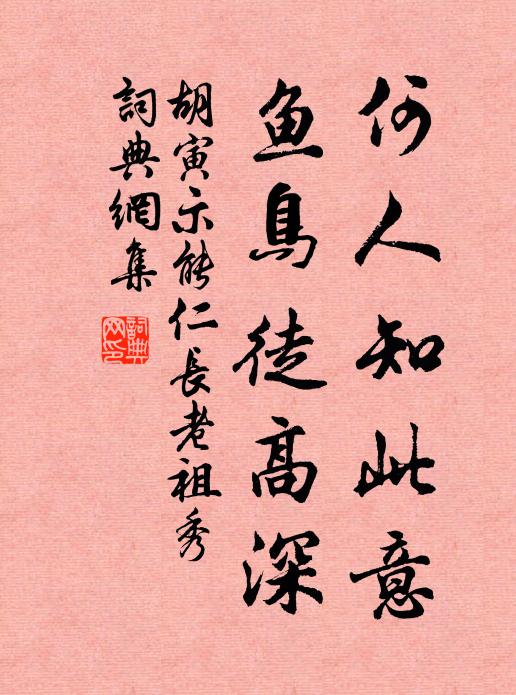 何人知此意
鱼鳥徒高深
胡寅示能仁長老祖秀
詞典網集
詞典
网印